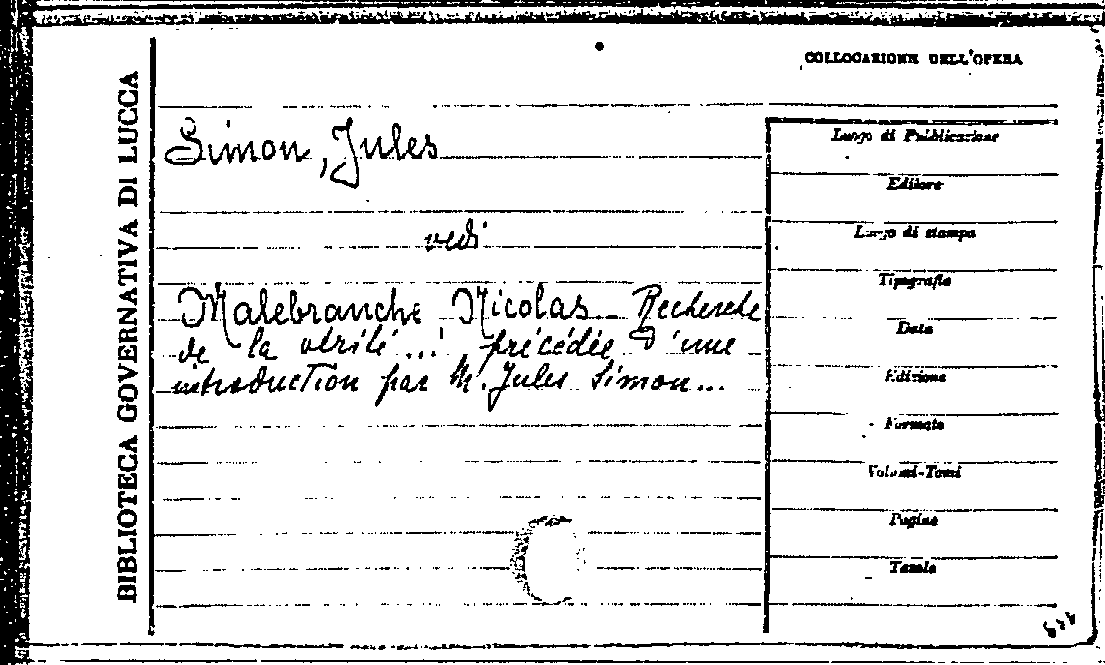 BIBLIOTECA GOVERNATIVA DI LUCCA
COLLOCAZIONE DELL'OPERA
Simon, Jules
vedi
Malebranche Nicolas. Recherche
de la vérité...; précédée d'une
introduction par M. Jules Simon...
Luogo di Pubblicazione
Editore
Luogo di stampa
Tipografia
Data
Edizione
Formato
Volumi-Tomi
Pagine
Tavole